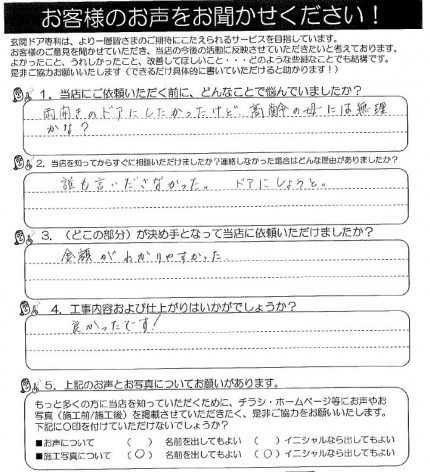 お客様のお声をお聞かせください！
玄関ドア専科は、より一層皆さまのご期待にこたえられるサービスを目指しています。
お客様のご意見を聞かせていただき、当店の今後の活動に反映させていただきたいと考えております。
よかったこと、うれしかったこと、改善してほしいこと・・・どのような些細なことでも結構です。
是非ご協力お願いいたします（できるだけ具体的に書いていただけると助かります！）
1．当店にご依頼いただく前に、どんなことで悩んでいましたか？
両開きのドアにしたかったけど 高齢の母には無理
かな？
2．当店を知ってからすぐに相談いただけましたか？連絡しなかった場合はどんな理由がありましたか？
誰も言いださなかった。 ドアにしようと。
3．（どこの部分）が決め手となって当店に依頼いただけましたか？
金額がわかりやすかった
4．工事内容および仕上がりはいかがでしょうか？
良かったです！
5．上記のお声とお写真についてお願いがあります。
もっと多くの方に当店を知っていただくために、チラシ・ホームページ等にお声やお
写真（施工前/施工後）を掲載させていただきたく、是非ご協力をお願いいたします。
下記に〇印を付けていただけないでしょうか？
■お声について （ ） 名前を出してもよい （ ）イニシャルなら出してもよい
■施工写真について （〇） 名前を出してもよい （〇）イニシャルなら出してもよい